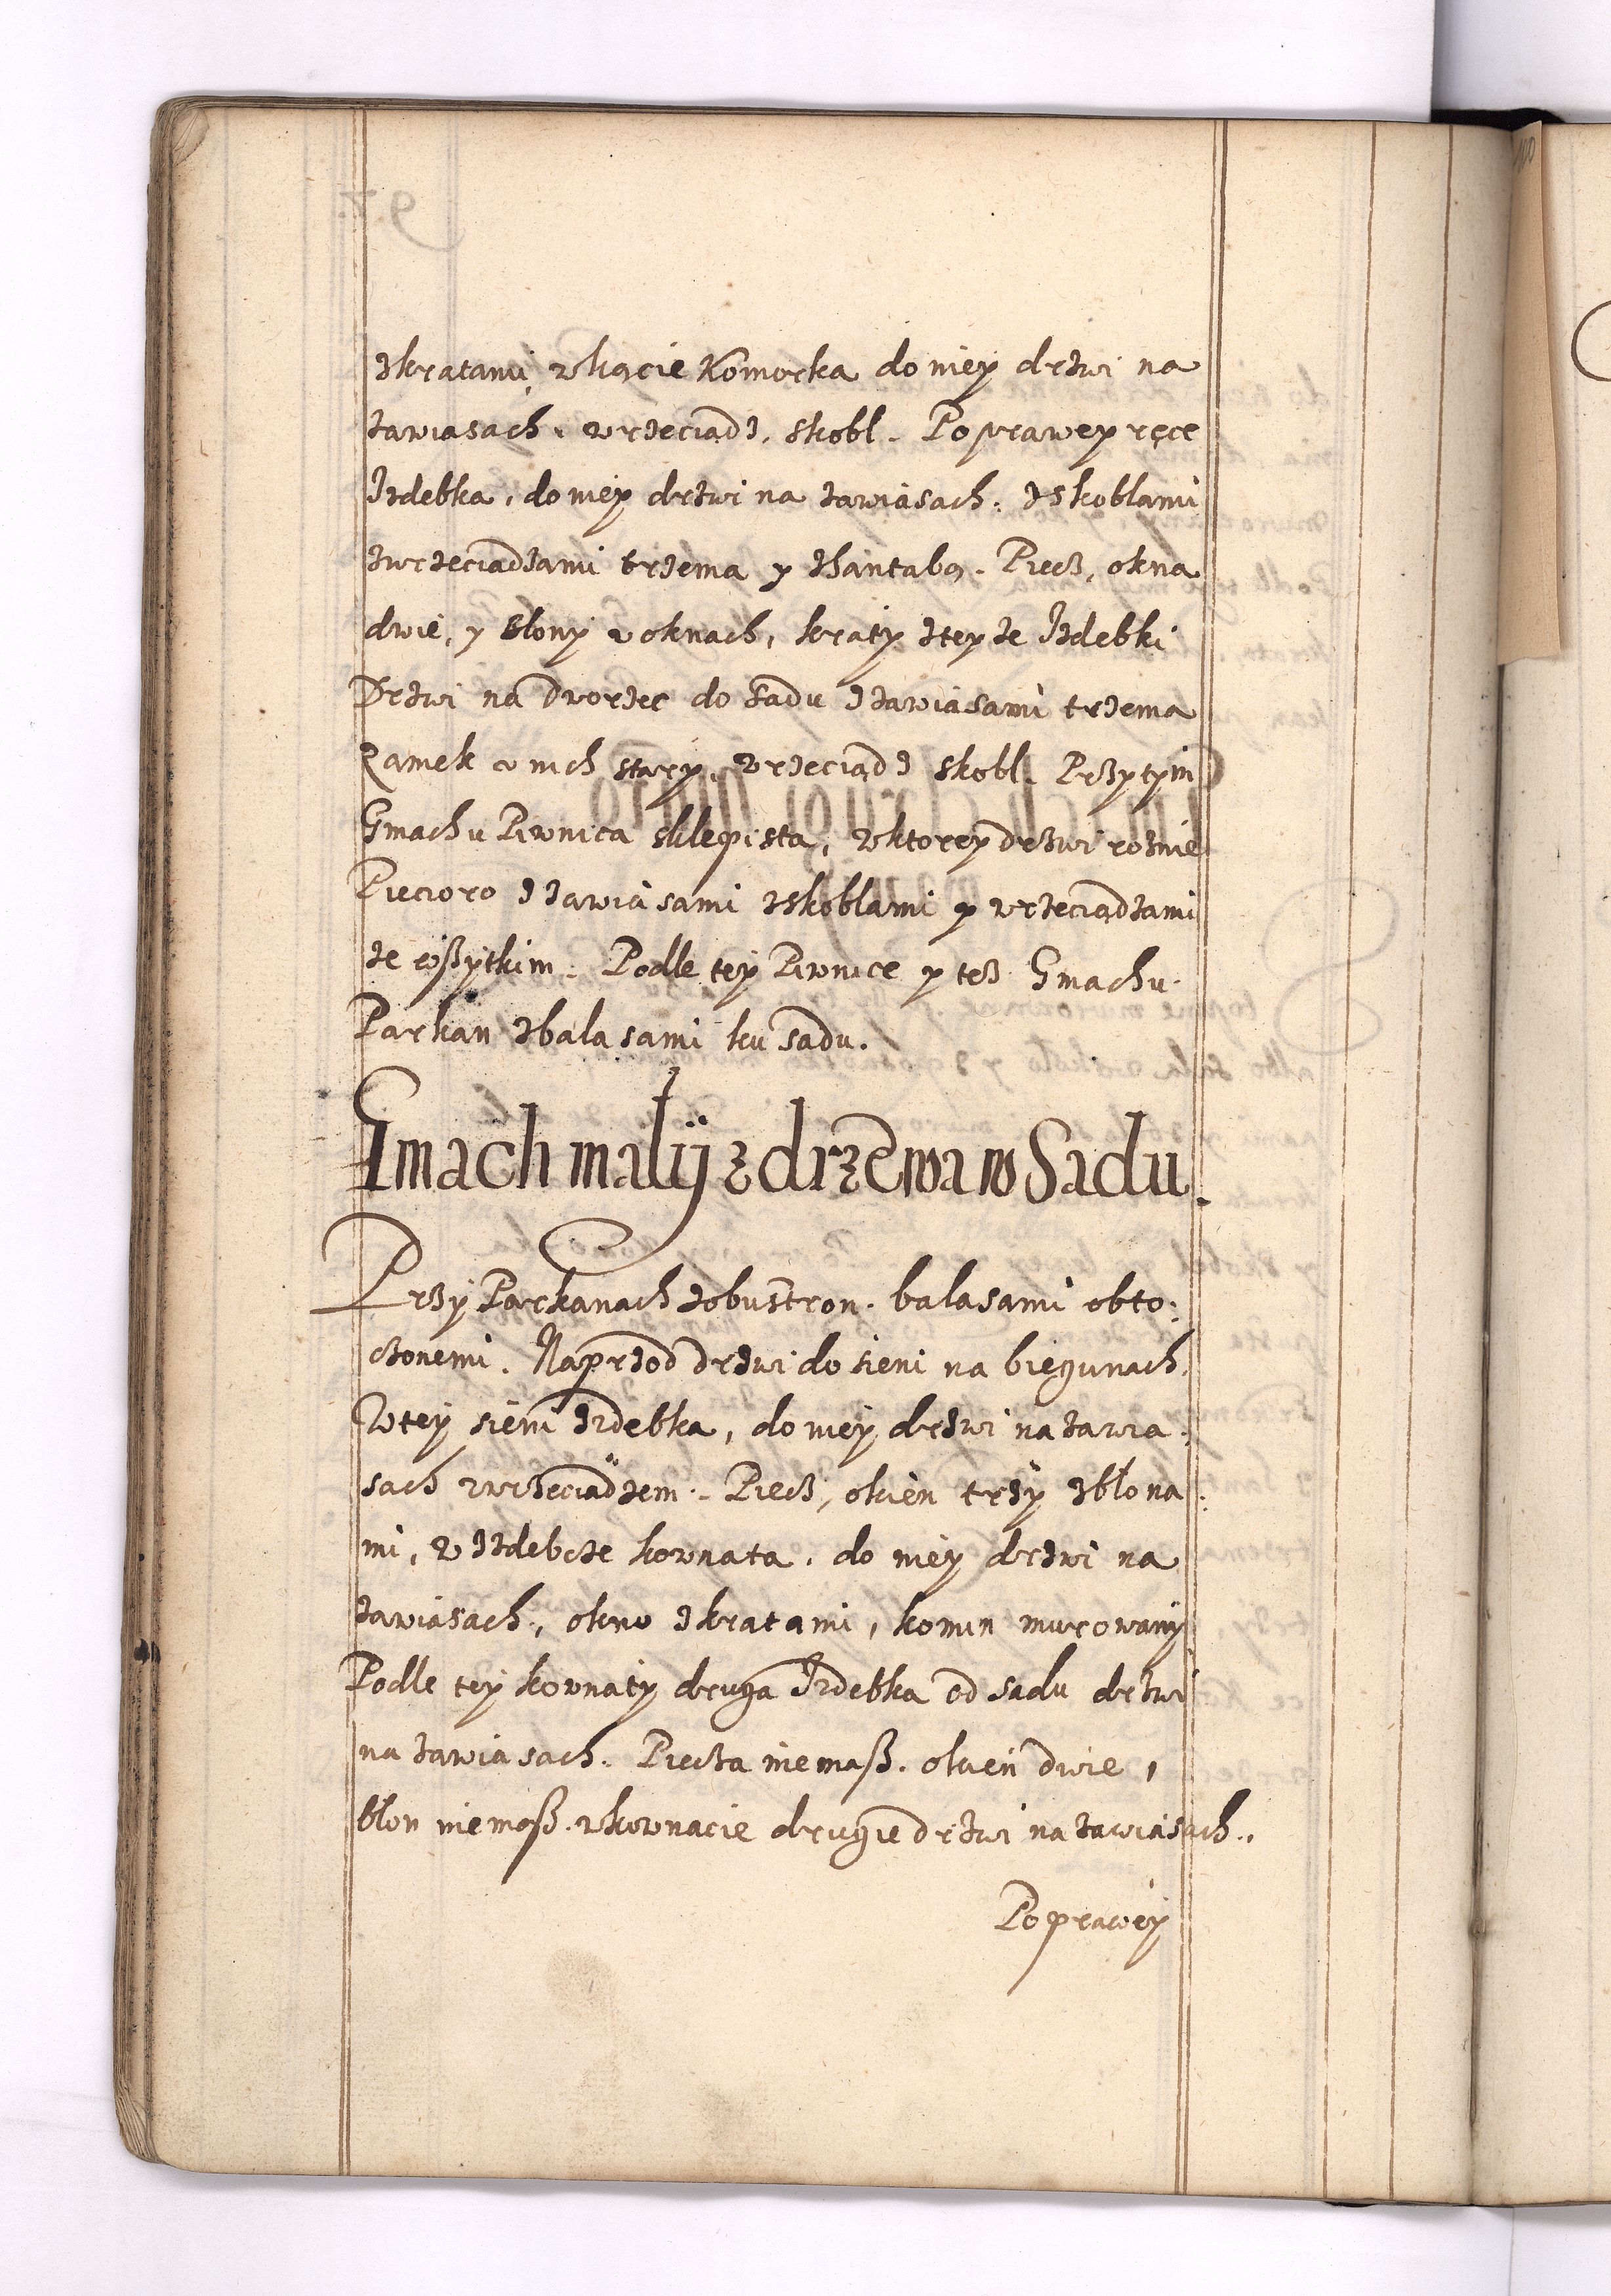 zkratami, wkącie Komorka do niey drzwi na
zawiasach, wrzeciądz, skobl. Po prawey ręce
Izdebka, do niey drzwi na zawiasach, zskoblami
zwrzeciądzami trzema y zhantabą. Piecz, okna
dwie, y błony w oknach, kraty zteyże Izdebki
Drzwi na Dworzec do Sadu z zawiasami trzema
Zamek w nich stary, wrzeciądz skobl. Przytym
Gmachu Piwnica sklepista, wktorey drzwi rożnie
Piecioro z zawiasami zskoblami y wrzeciądzami
ze wszytkim. Podle tey Piwnice y tesz Gmachu
Parkan zbalasami ku sadu.
Gmach malÿ z drzewa w Sadu.
Przy Parkanach zobustron balasami obto-
czonemi. Naprzod drzwi do sieni na biegunach.
Wtey sieni Izdebka, do niey drzwi na zawia-
sach zwrzeciądzem. Piecz, okien trzy zbłona-
mi, w Izdebcze kownata, do niey drzwi na
zawiasach, okno zkratami, komin murowany
Podle tey kownaty druga Izdebka od sadu drzwi
na zawiasach. Piecza niemasz. okien dwie,
błon niemasz. wkownacie drugie drzwi na zawiasach.
Po prawey